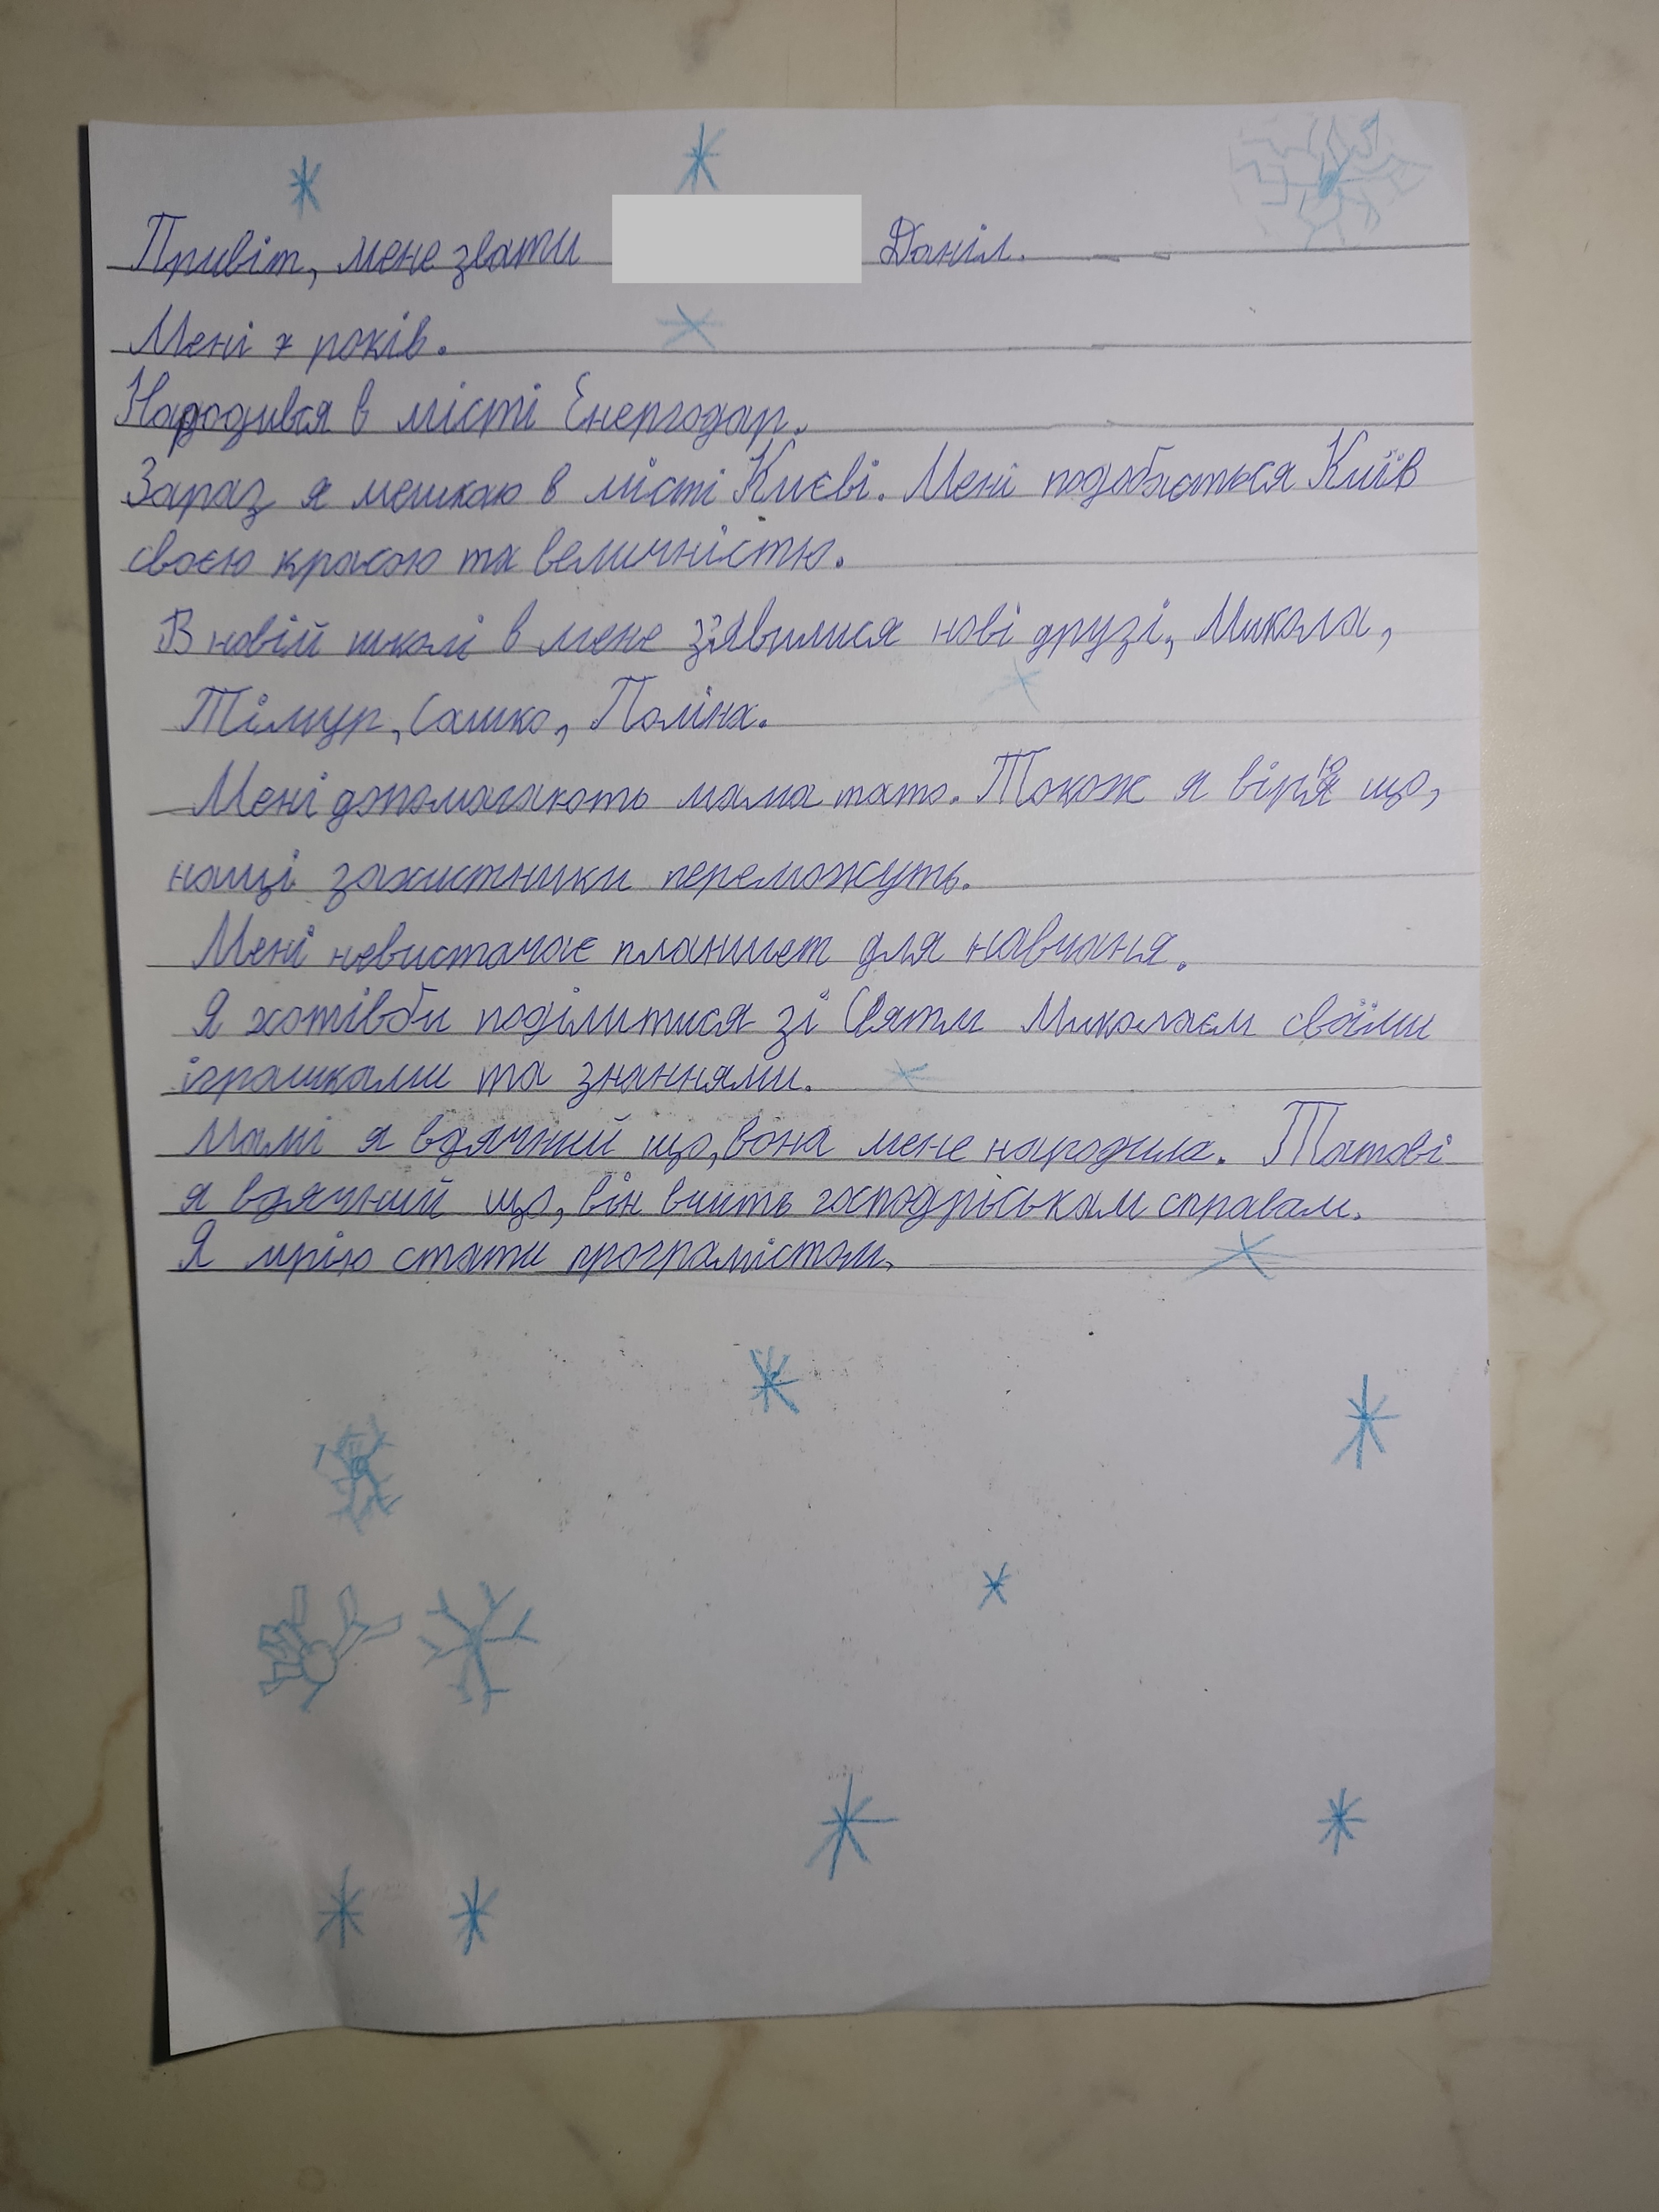 Привіт, мене звати Даніл.
Мені 7 років.
Народився в місті Енергодар.
Зараз я мешкаю в місті Києві. Мені подобається Київ
своєю красою та величністю.
В новій школі в мене з'явилися нові друзі, Микола,
Тімур, Сашко, Поліна.
Мені допомагають мама тато. Також я вірю що,
наші захистники переможуть.
Мені невистачає планшет для навчаня.
Я хотівби поділитися зі Святм Миколаєм своїми
іграшками та знаннями.
Мамі я вдячний що, вона мене народила. Татові
я вдячний що, він вчить справам.
Я мрію стати програмістом.